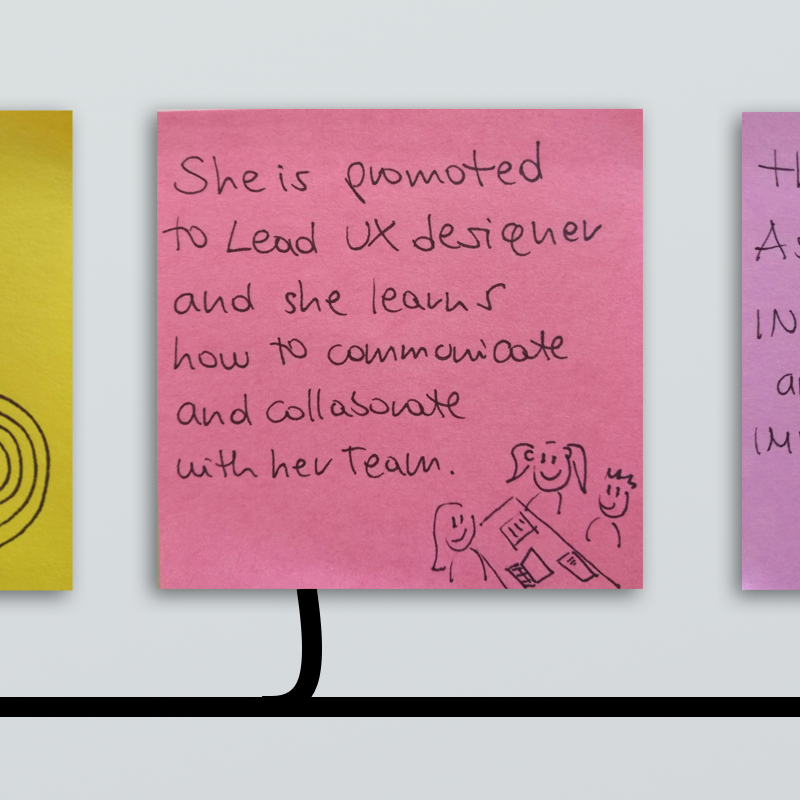 She is promoted
to Lead UX designer
and she learns
how to communicate
and collaborate
with her Team.